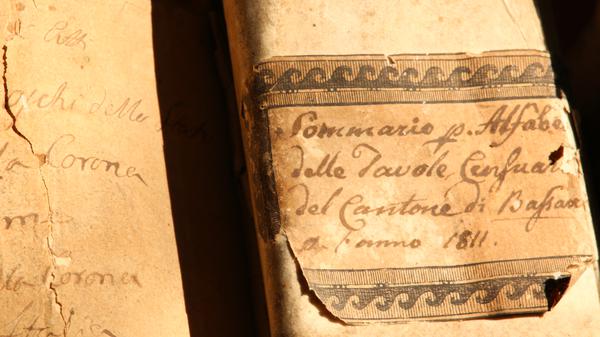 della
la Corona
la Corona
Sommario p. Alfabe
delle Tavole Censuar
del Cantone di Bassan
a l'anno 1811.